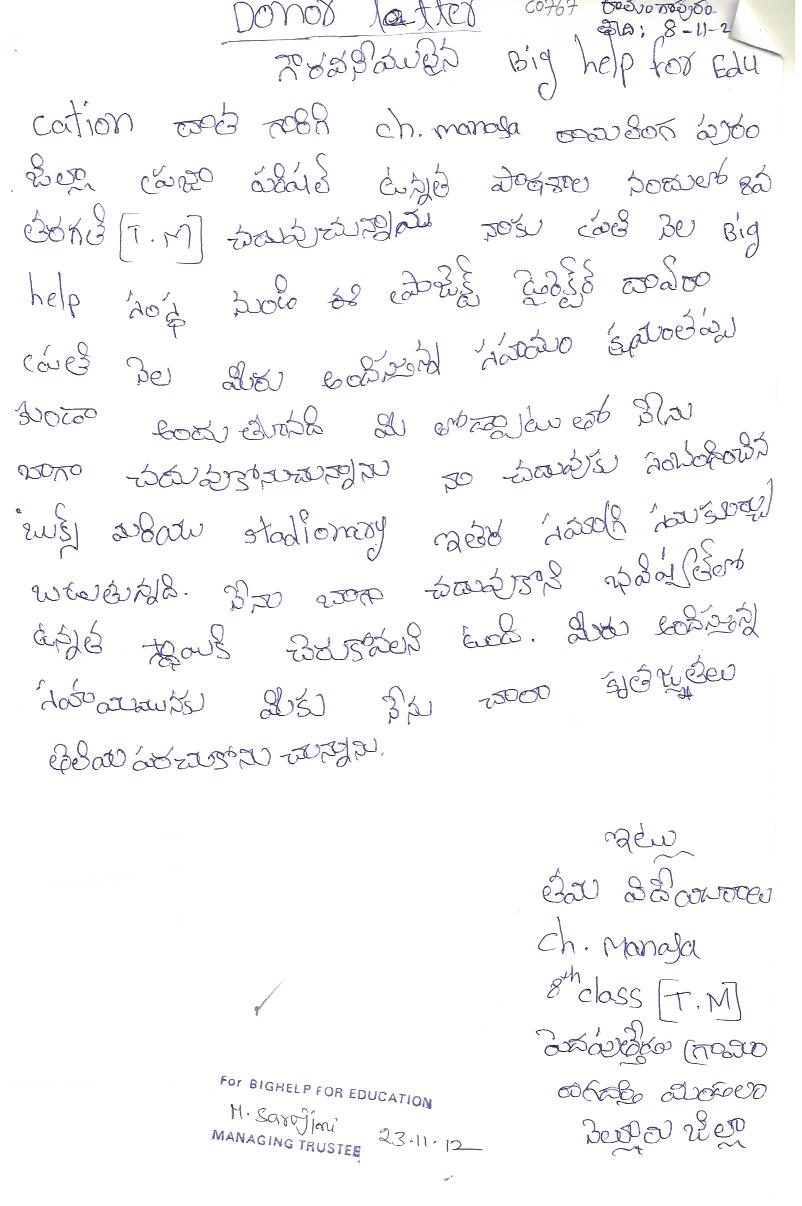 Donor latter
C0767
రామలింగాపురం
తేది: 8-11-2
గౌరవనీములైన Big help for Edu
cation దాత గారికి ch. manasa రామలింగ పురం
జిల్లా ప్రజా పరిషత్ ఉన్నత పాఠశాల నందులో 8వ
తరగతి [T.M] చదువుచున్నాను నాకు ప్రతి నెల Big
help సంస్థ నుండి ఈ ప్రాజెక్ట్ డైరెక్టర్ ద్వారా
ప్రతి నెల మీరు అందిస్తున్న సహాయం క్రమంతప్పు
కుండా అందు తూనది మీ తోడ్పాటు తో నేను
బాగా చదువుకోనుచున్నాను నా చదువుకు సంబంధించిన
బుక్స్ మరియు stadionary ఇతర సమాగ్రి సమకుర్చ
బడుతున్నది. నేను బాగా చదువుకొని భవిష్యత్‌లో
ఉన్నత స్థాయికి చేరుకోవలని ఉంది. మీరు అందిస్తున్న
సహాయమునకు మీకు నేను చాలా కృతజ్ఞతలు
తెలియ పరచుకోను చున్నాను.
ఇట్లు
తమ విదేయురాలు
ch. Manasa
8th class [T.M]
పెదపుత్తేడు గ్రామం
దగదర్తి మండలం
నెల్లూరు జిల్లా
For BIGHELP FOR EDUCATION
M. Sarojini
23.11.12
MANAGING TRUSTEE